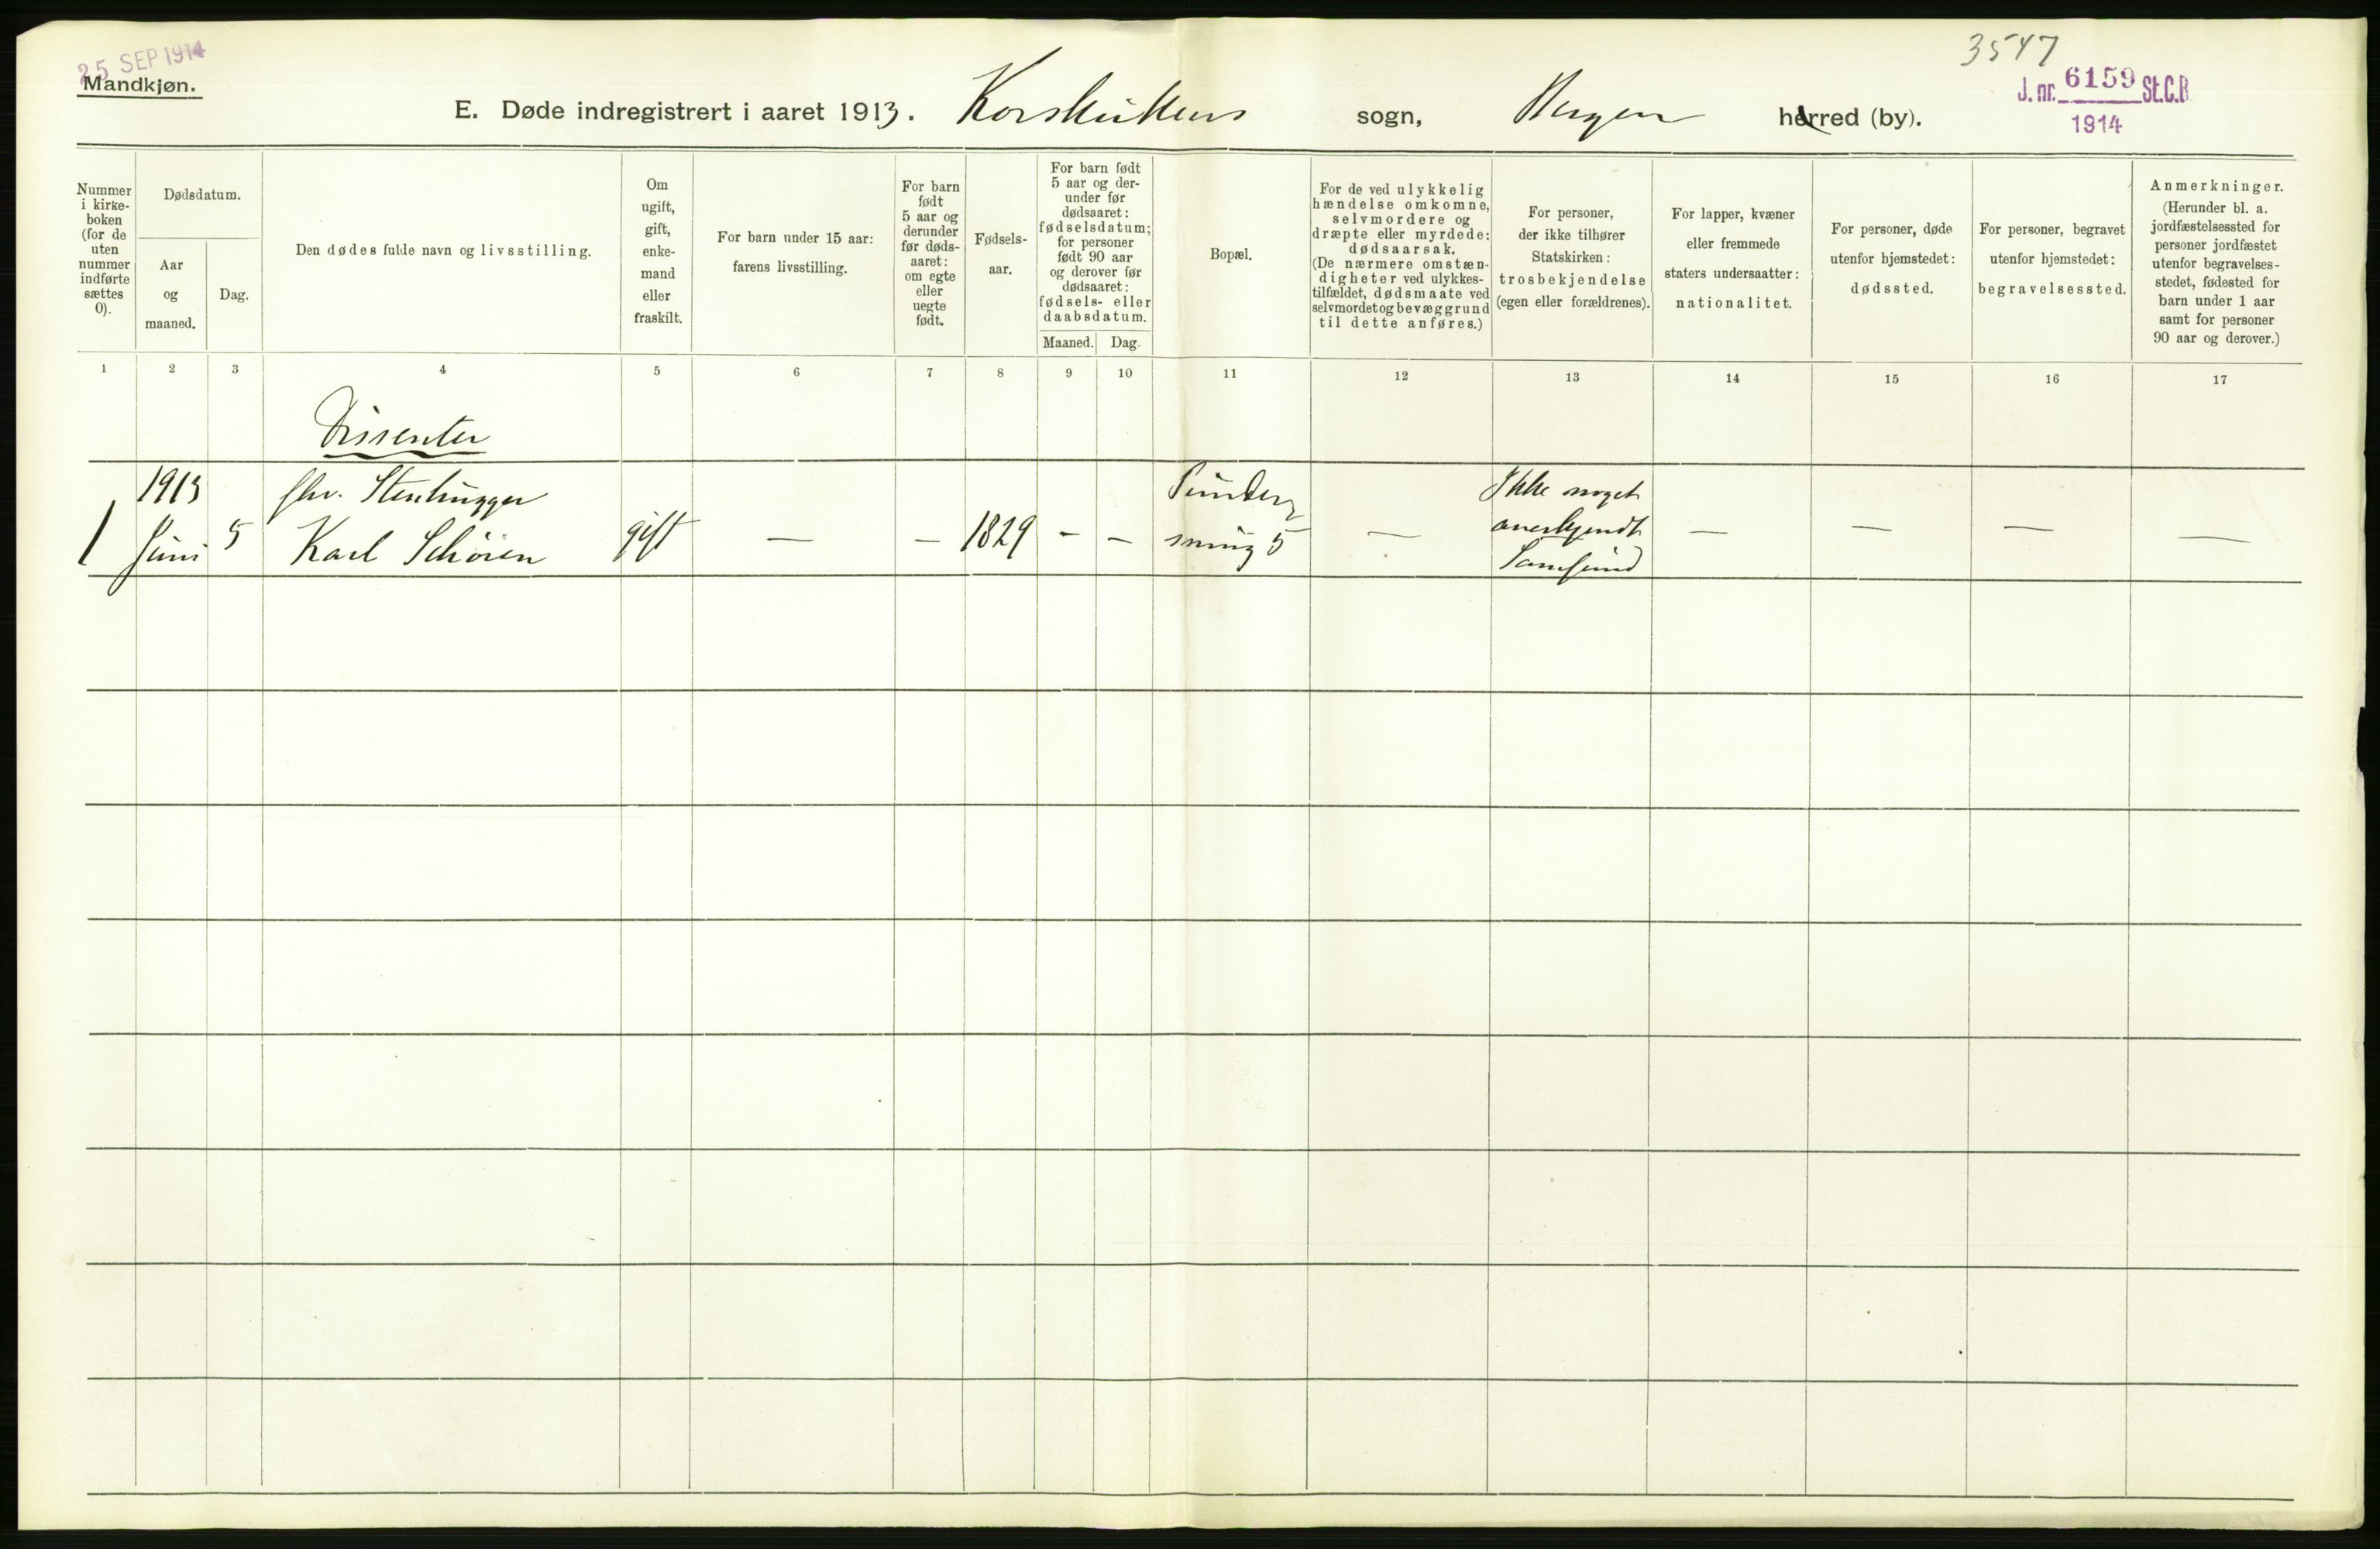 25 SEP 1914
3547
Mandkjøn.
J. nr. 6159 St.C.B
1914
E. Døde indregistrert i aaret 1913. Korskirkens sogn, Bergen herred (by).
Nummer
i kirke-
boken
(for de
uten
nummer
indførte
sættes
0).
Dødsdatum.
Aar
og
maaned.
Dag.
Den dødes fulde navn og livsstilling.
Om
ugift,
gift,
enke-
mand
eller
fraskilt.
For barn under 15 aar:
farens livsstilling.
For barn
født
5 aar og
derunder
før døds-
aaret:
om egte
eller
uegte
født.
Fødsels-
aar.
For barn født
5 aar og der-
under før
dødsaaret:
fødselsdatum;
for personer
født 90 aar
og derover før
dødsaaret:
fødsels- eller
daabsdatum.
Maaned. Dag.
Bopæl.
For de ved ulykkelig
hændelse omkomne,
selvmordere og
dræpte eller myrdede:
dødsaarsak.
(De nærmere omstæn-
digheter ved ulykkes-
tilfældet, dødsmaate ved
selvmordet og bevæggrund
til dette anføres.)
For personer,
der ikke tilhører
Statskirken:
trosbekjendelse
(egen eller forældrenes).
For lapper, kvæner
eller fremmede
staters undersaatter:
nationalitet.
For personer, døde
utenfor hjemstedet:
dødssted.
For personer, begravet
utenfor hjemstedet:
begravelsessted.
Anmerkninger.
(Herunder bl. a.
jordfæstelsessted for
personer jordfæstet
utenfor begravelses-
stedet, fødested for
barn under 1 aar
samt for personer
90 aar og derover.)
1 2 3 4 5 6 7 8 9 10 11 12 13 14 15 16 17
Dissenter
1913 fhv. Stenhugger Ikke noget
1 Juni 5 Karl Schøien gift — — 1829 - - smug 5 — anerkjendt — — — —
Samfund